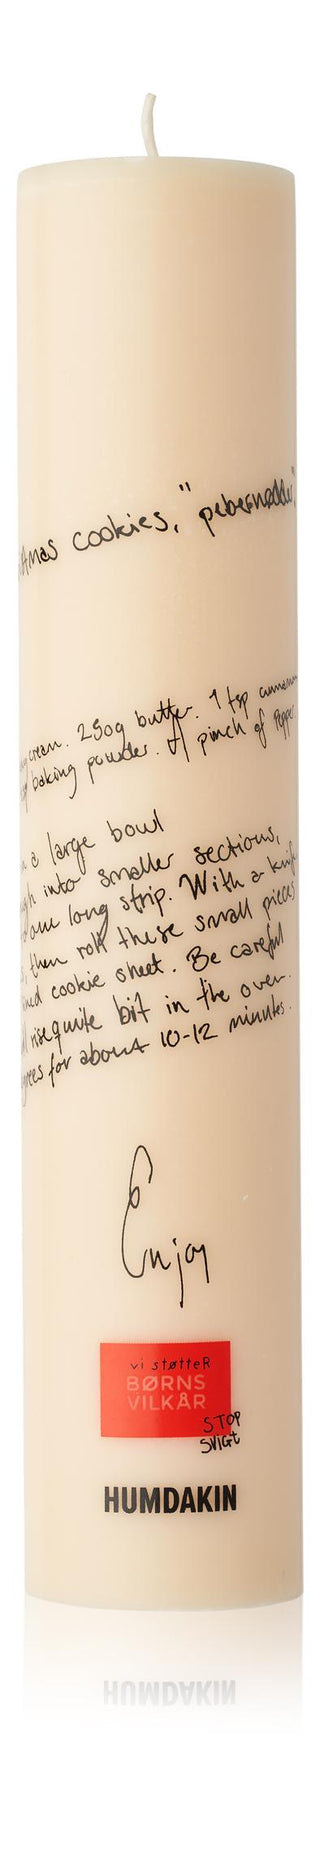 cookies, "pebernødder",
cream. 250g butter. 1 tsp
baking powder. 1 pinch of Pepper.
a large bowl
into smaller sections,
one long strip. With a
then roll these small pieces
cookie sheet. Be careful
rise quite bit in the oven.
for about 10-12 minutes.
Enjoy
vi støtteR
BØRNS
VILKÅR
STOP
SVIGT
HUMDAKIN